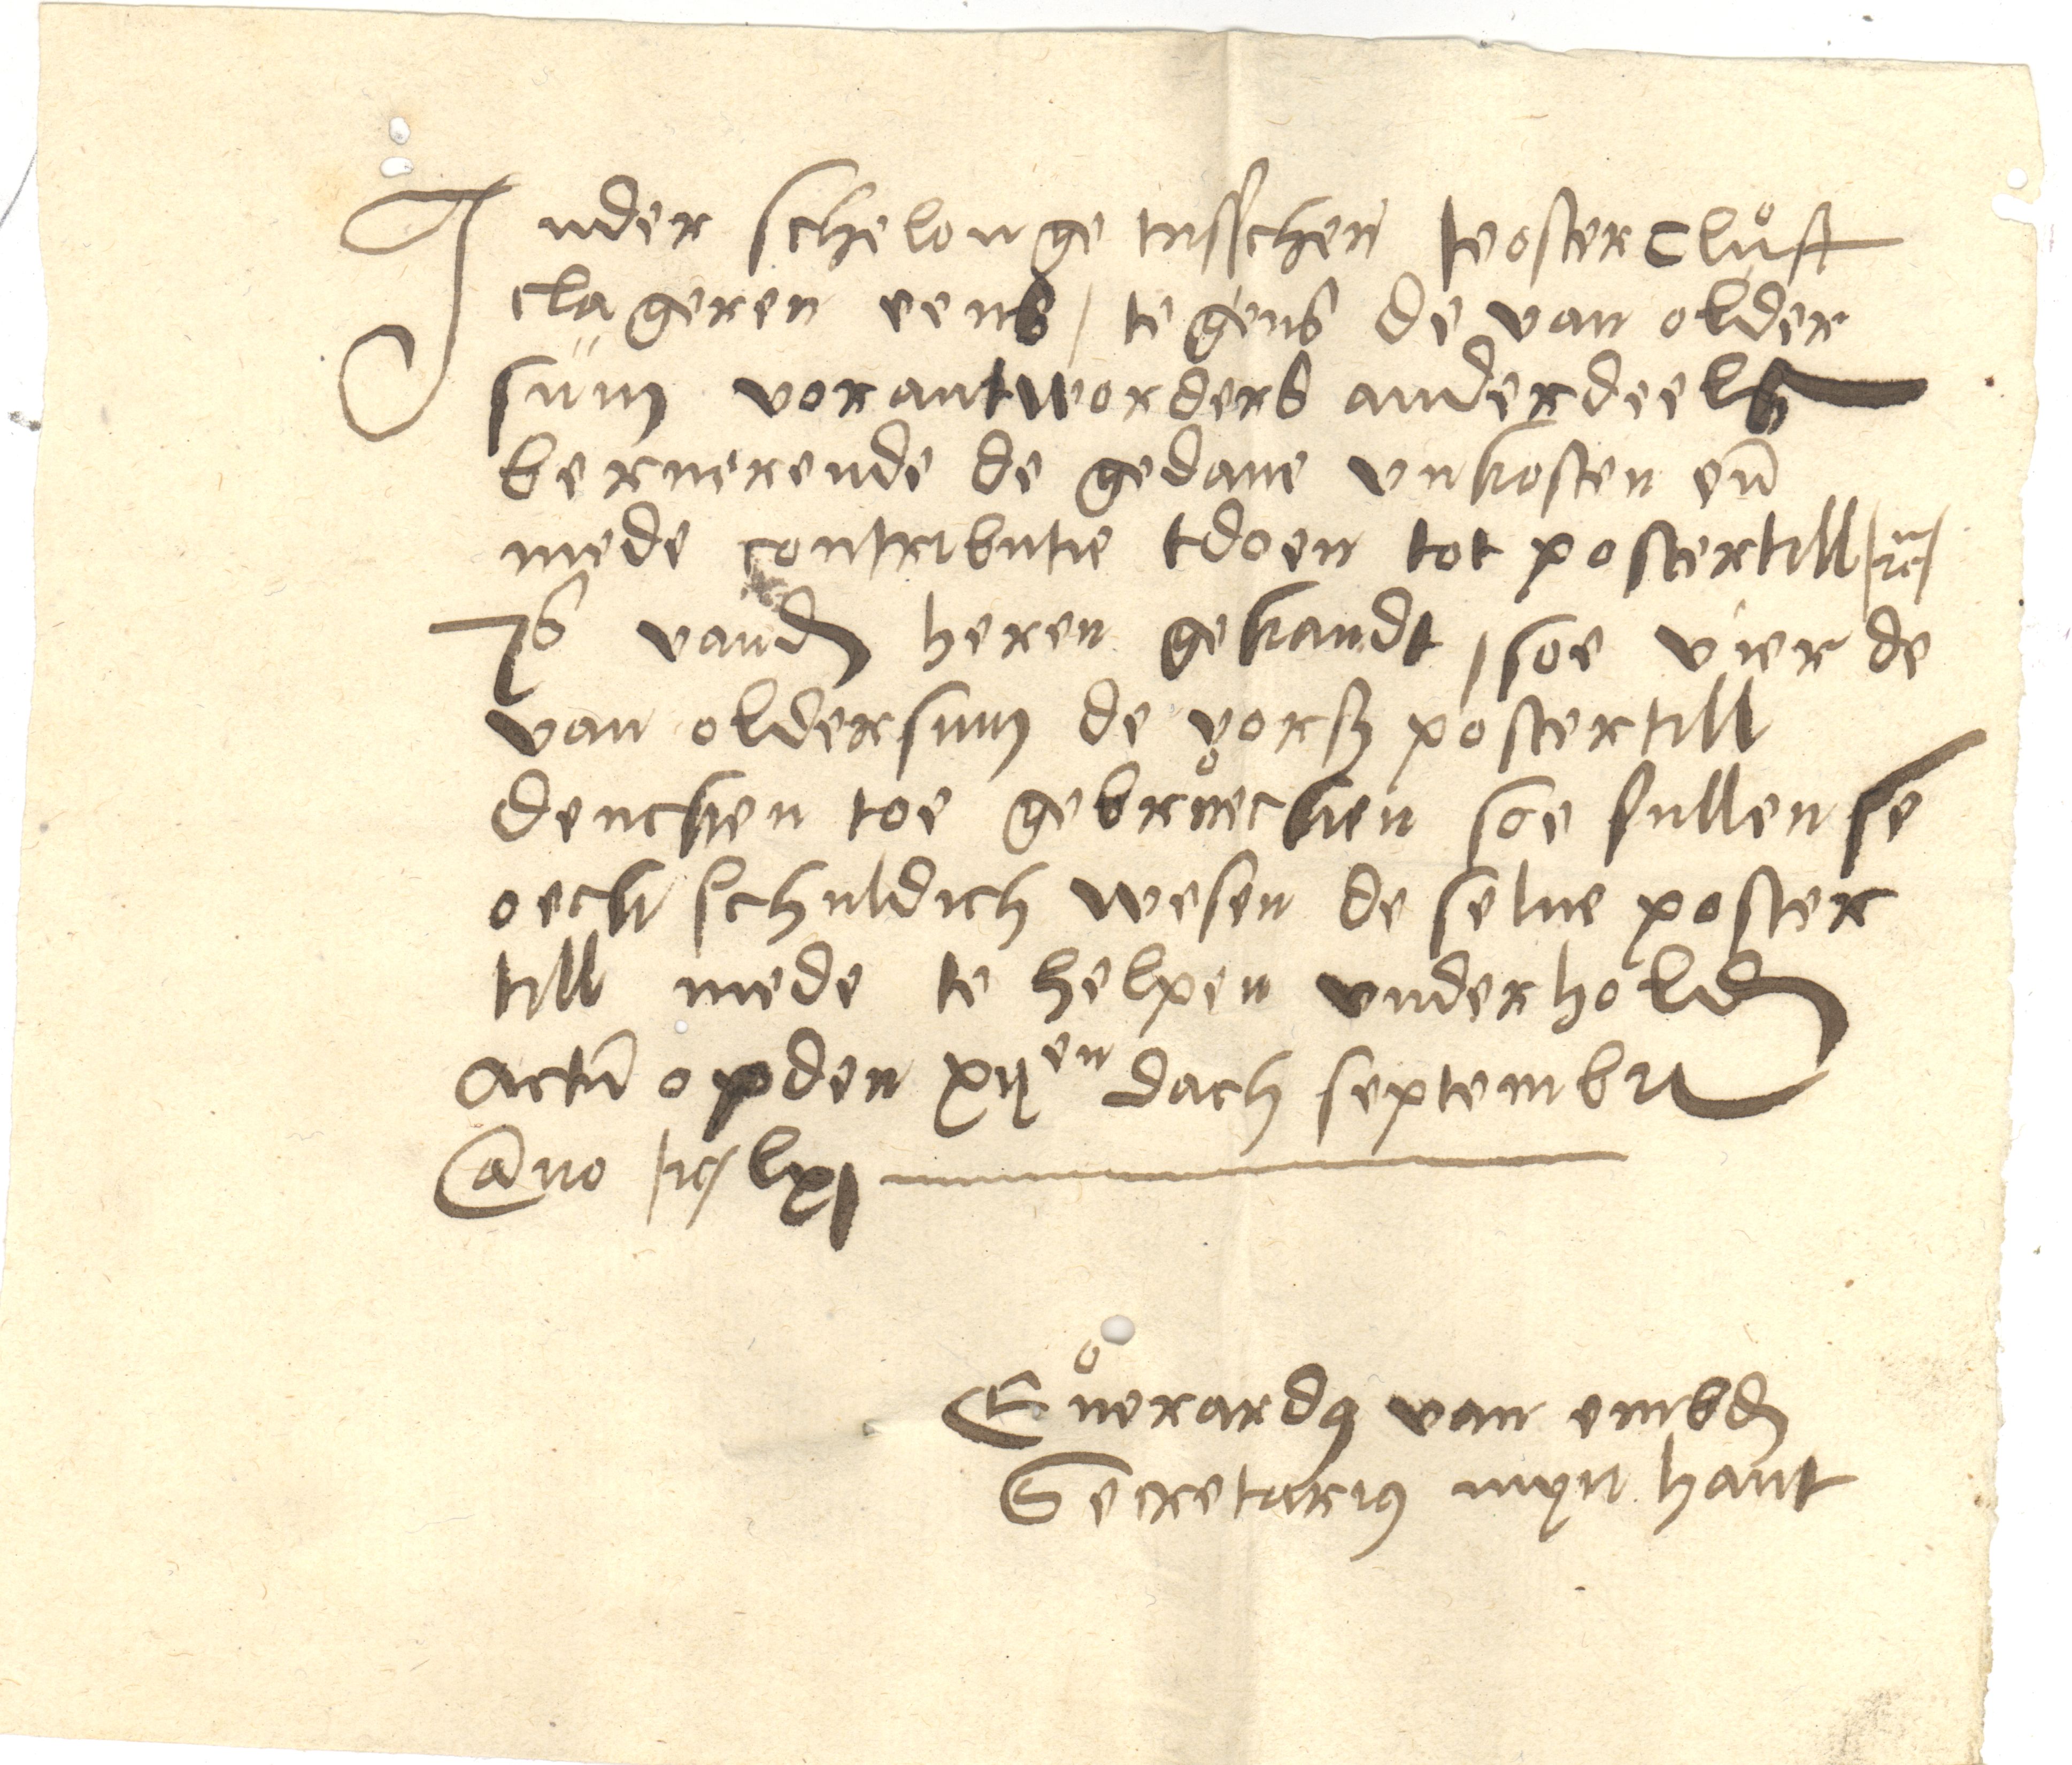 Jnder schelonge tusschen teoster cluft
clageren eens / tegens de van older
sum vorantworders anderdeels
bernerende de gedane vnkosten en̄
mede contributie tdoen tot postertill /rc/
vand heren gekandt / soe vier de
van oldersum de vorss postertill
dencken toe gebruecken soe sullen se
oeck schuldich wesen de selue poster
till mede te helpen vnderhold
Actū opden xijen dach septembr
Āno /rc/ lxj
Euerardꝰ van embd
Secretariꝰ mijn hant